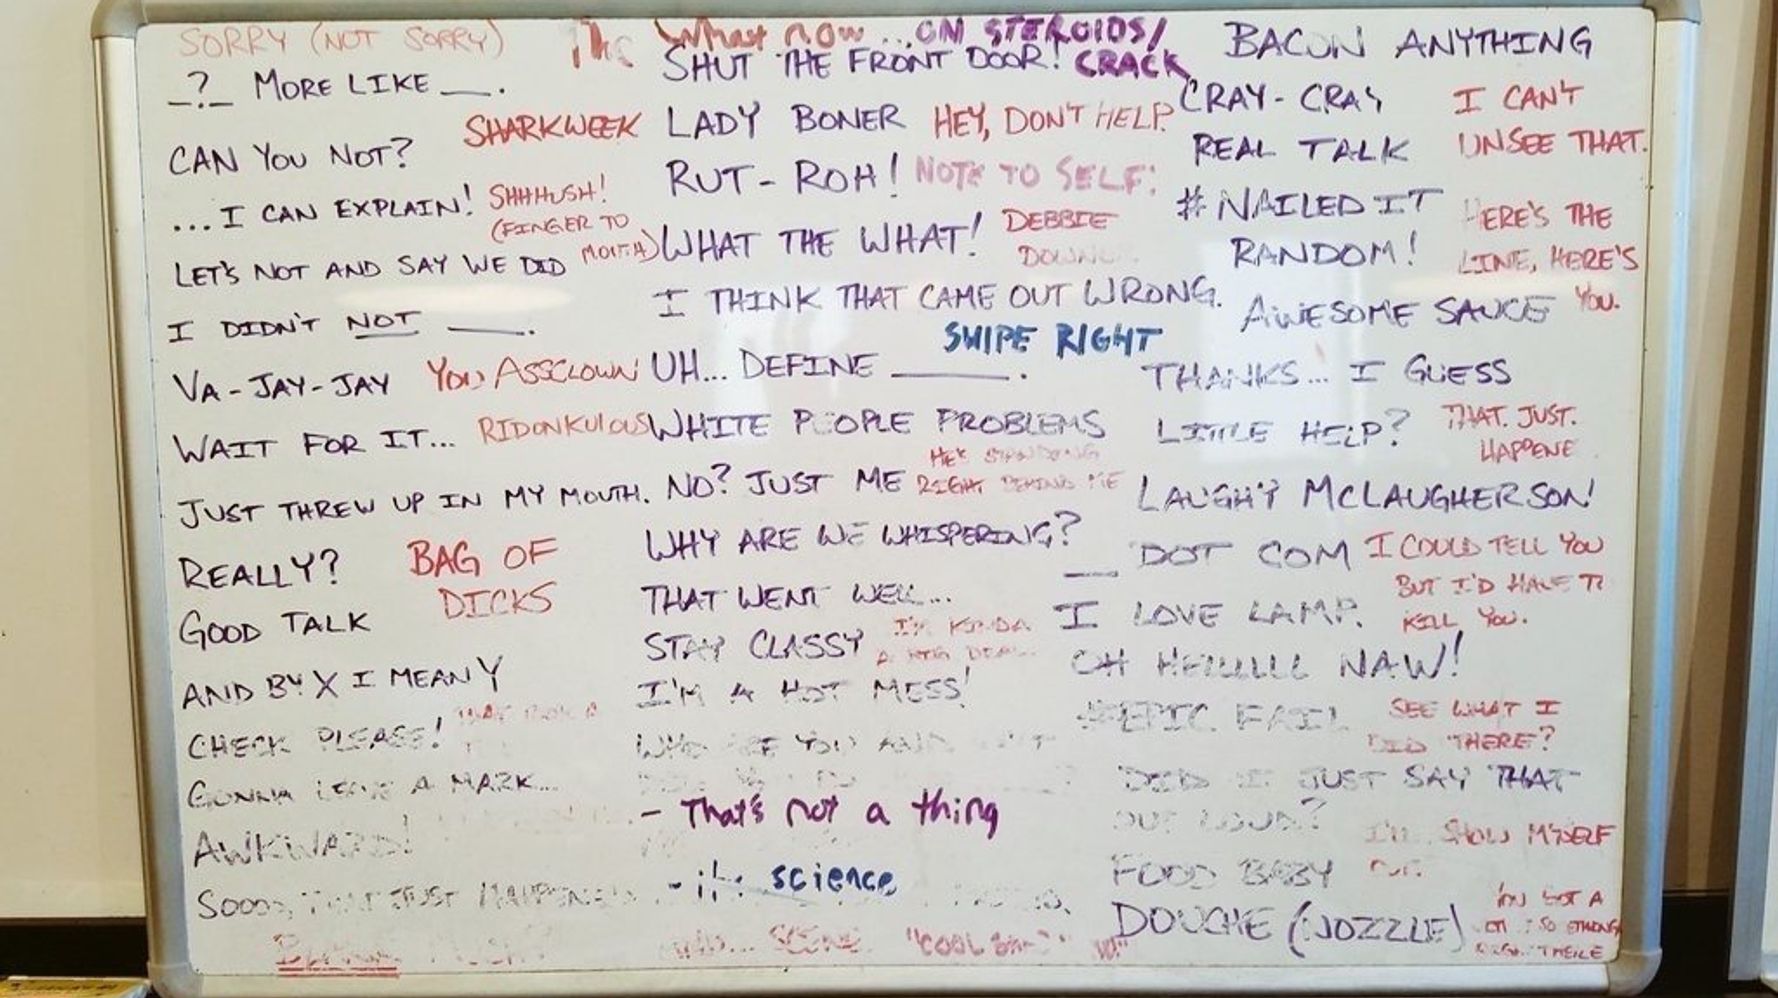 SORRY (NOT SORRY)
_?_ MORE LIKE ___.
SHARKWEEK
CAN YOU NOT?
...I CAN EXPLAIN!
SHHHUSH!
(FINGER TO
MOUTH)
LET'S NOT AND SAY WE DID
I DIDN'T NOT ____.
VA-JAY-JAY
YOU ASSCLOWN
WAIT FOR IT...
RIDONKULOUS
JUST THREW UP IN MY MOUTH.
REALLY?
BAG OF
DICKS
GOOD TALK
AND BY X I MEAN Y
CHECK PLEASE!
GONNA LEAVE A MARK...
AWKWARD!
SOOOO, THAT JUST HAPPENED
What now
...ON STEROIDS/
CRACK
SHUT THE FRONT DOOR!
LADY BONER
HEY, DON'T HELP.
RUT-ROH!
NOTE TO SELF:
WHAT THE WHAT!
DEBBIE
DOWN
I THINK THAT CAME OUT WRONG.
SWIPE RIGHT
UH... DEFINE ______.
WHITE PEOPLE PROBLEMS
HE'S STANDING
RIGHT BEHIND ME
NO? JUST ME
WHY ARE WE WHISPERING?
THAT WENT WELL...
STAY CLASSY
I'M KINDA
A BIG DEAL
I'M A HOT MESS!
WHO ARE YOU AND
- That's not a thing
- science
SCENE
"COOL
BACON ANYTHING
CRAY-CRAY
I CAN'T
UNSEE THAT.
REAL TALK
#NAILED IT
HERE'S THE
LINE, HERE'S
YOU.
RANDOM!
AWESOME SAUCE
THANKS... I GUESS
LITTLE HELP?
THAT. JUST.
HAPPENE
LAUGHY MCLAUGHERSON!
__ DOT COM
I COULD TELL YOU
BUT I'D HAVE TO
KILL YOU.
I LOVE LAMP.
OH HELLLLL NAW!
#EPIC FAIL
SEE WHAT I
DID THERE?
DID I JUST SAY THAT
OUT LOUD?
I'LL SHOW MYSELF
OUT.
FOOD BABY
DOUCHE (NOZZLE)
YOU GOT A
SOMETHING
RIGHT THERE